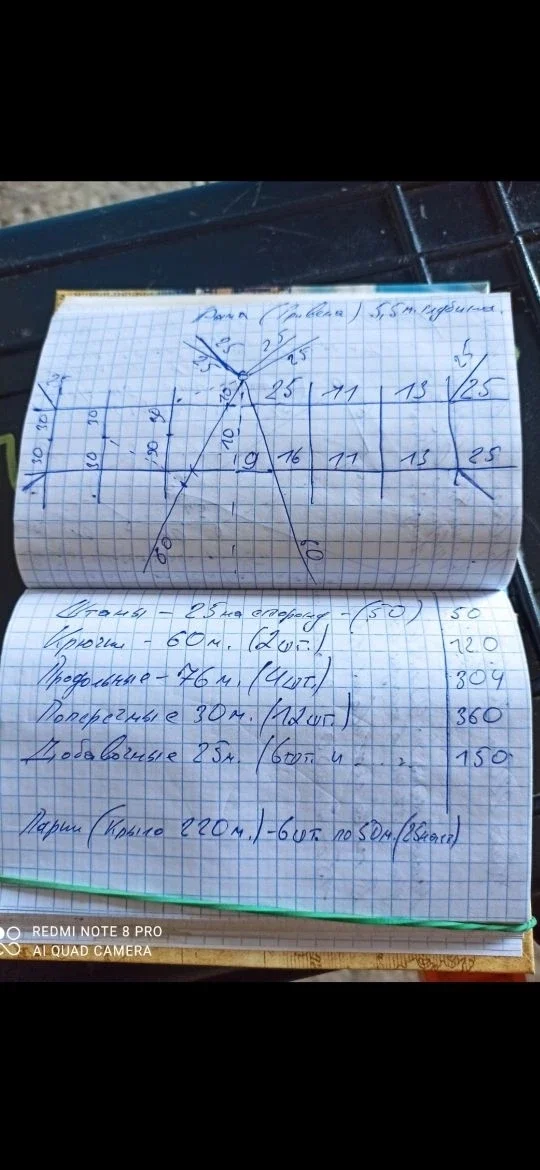 Рама (Гривена) 5,5м. глубина.
25 25
25
25 11 13 25
30 30 30
10
10
30 30 30
9 16 11 13 25
60 60
Штаны - 25 на сторону - (50) 50
Крючки - 60 м. (2 шт.) 120
Продольные - 76 м. (4 шт.) 304
Поперечные 30 м. (12 шт.) 360
Добавочные 25 м. (6 шт. и . . . 150
Парки (Крыло 220 м.) - 6 шт. по 50 м.
REDMI NOTE 8 PRO
AI QUAD CAMERA